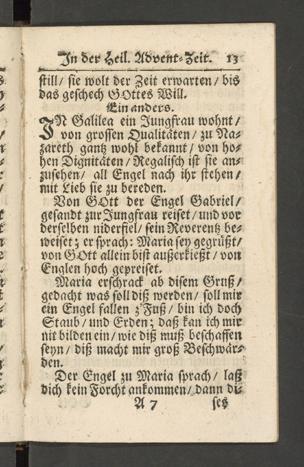 In der Heil. Advent-Zeit. 13
still/ sie wolt der Zeit erwarten/ bis
das geschech GOttes Will.
Ein anders.
IN Galilea ein Jungfrau wohnt/
von grossen Qualitäten/ zu Na-
zareth gantz wohl bekannt/ von ho-
hen Dignitäten/ Regalisch ist sie an-
zusehen/ all Engel nach ihr stehen/
mit Lieb sie zu bereden.
Von GOtt der Engel Gabriel/
gesandt zur Jungfrau reiset/ und vor
derselben niderfiel/ sein Reverentz be-
weiset; er sprach: Maria sey gegrüßt/
von GOtt allein bist außerkießt/ von
Englen hoch gepreiset.
Maria erschrack ab disem Gruß/
gedacht was soll diß werden/ soll mir
ein Engel fallen z'Fuß/ bin ich doch
Staub/ und Erden; daß kan ich mir
nit bilden ein/ wie diß muß beschaffen
seyn/ diß macht mir groß Beschwär-
den.
Der Engel zu Maria sprach/ laß
dich kein Forcht ankommen/ dann di-
A 7 ses